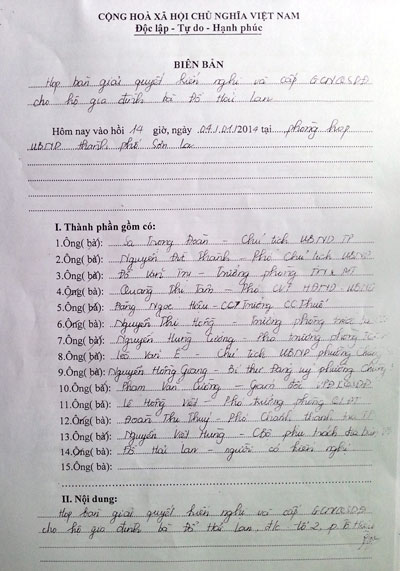 CỘNG HOÀ XÃ HỘI CHỦ NGHĨA VIỆT NAM
Độc lập - Tự do - Hạnh phúc
BIÊN BẢN
Họp bàn giải quyết kiến nghị và cấp GCNQSDĐ
cho hộ gia đình bà Đỗ Hải Lan
Hôm nay vào hồi 14 giờ, ngày 04/01/2014 tại phòng họp
UBND thành phố Sơn La
I. Thành phần gồm có:
1.Ông( bà): Sa Trọng Đoàn - Chủ tịch UBND TP
2.Ông( bà): Nguyễn Đức Thành - Phó Chủ tịch UBND
3.Ông( bà): Đỗ Văn Trụ - Trưởng phòng TN & MT
4.Ông( bà): Quang Thị Tâm - Phó CVP HĐND - UBND
5.Ông( bà): Đặng Ngọc Hiếu - CCT Trưởng CC Thuế
6.Ông( bà): Nguyễn Thị Hồng - Trưởng phòng
7.Ông( bà): Nguyễn Hùng Cường - Phó trưởng phòng
8.Ông( bà): Lèo Văn E - Chủ tịch UBND phường
9.Ông( bà): Nguyễn Hồng Giang - Bí thư Đảng uỷ phường
10.Ông( bà): Phạm Văn Cường - Giám đốc VPĐKQSDĐ
11.Ông( bà): Lê Hồng Việt - Phó trưởng phòng QLĐT
12.Ông( bà): Đoàn Thị Thuý - Phó Chánh thanh tra TP
13.Ông( bà): Nguyễn Việt Hùng - CBộ phụ trách địa bàn
14.Ông( bà): Đỗ Hải Lan - người có kiến nghị
15.Ông( bà):
II. Nội dung:
Họp bàn giải quyết kiến nghị và cấp GCNQSDĐ
cho hộ gia đình bà Đỗ Hải Lan, đ/c tổ 2, p. Tô Hiệu